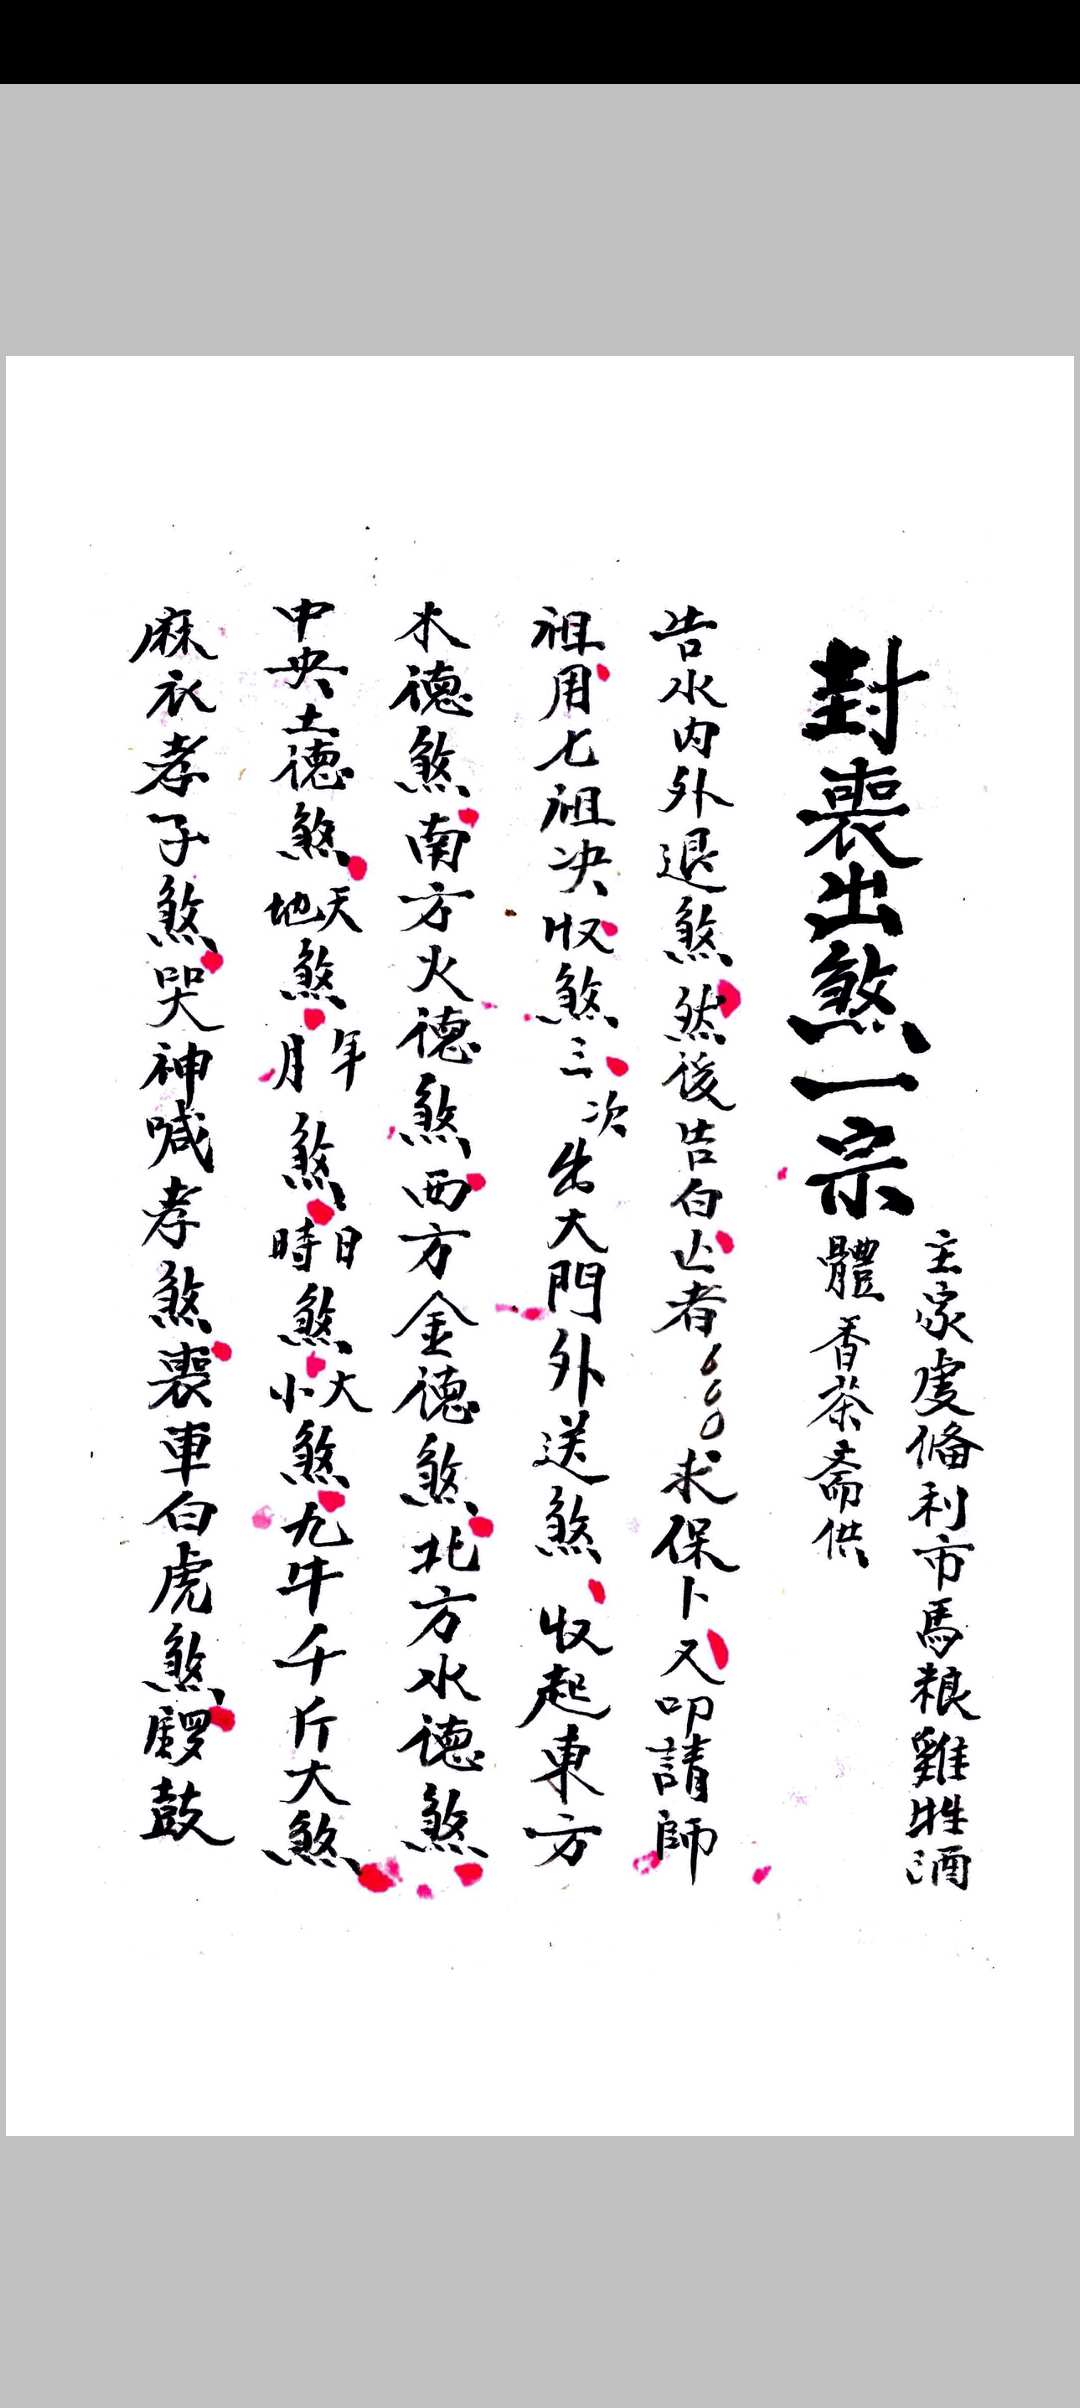 封喪出煞一宗
主家虔俻利市馬粮雞牲酒
體香茶斋供
告水内外退煞然後告白亡者求保卜又叩請師
祖用七祖决收煞三次出大門外送煞收起東方
木德煞南方火德煞西方金德煞北方水德煞
中央土德煞天地煞年月煞日時煞大小煞九牛千斤大煞
麻衣孝子煞哭神喊孝煞喪車白虎煞鑼鼓